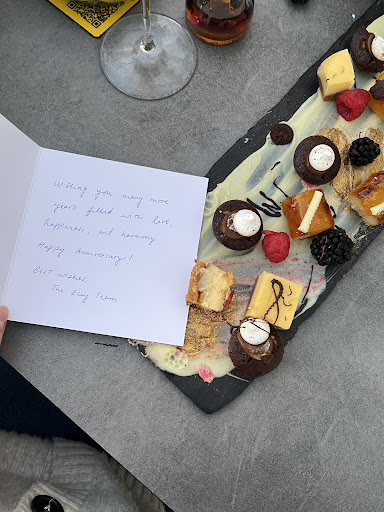 Wishing you many more
years filled with love,
happiness, and harmony
Happy Anniversary!
Best wishes,
The Team